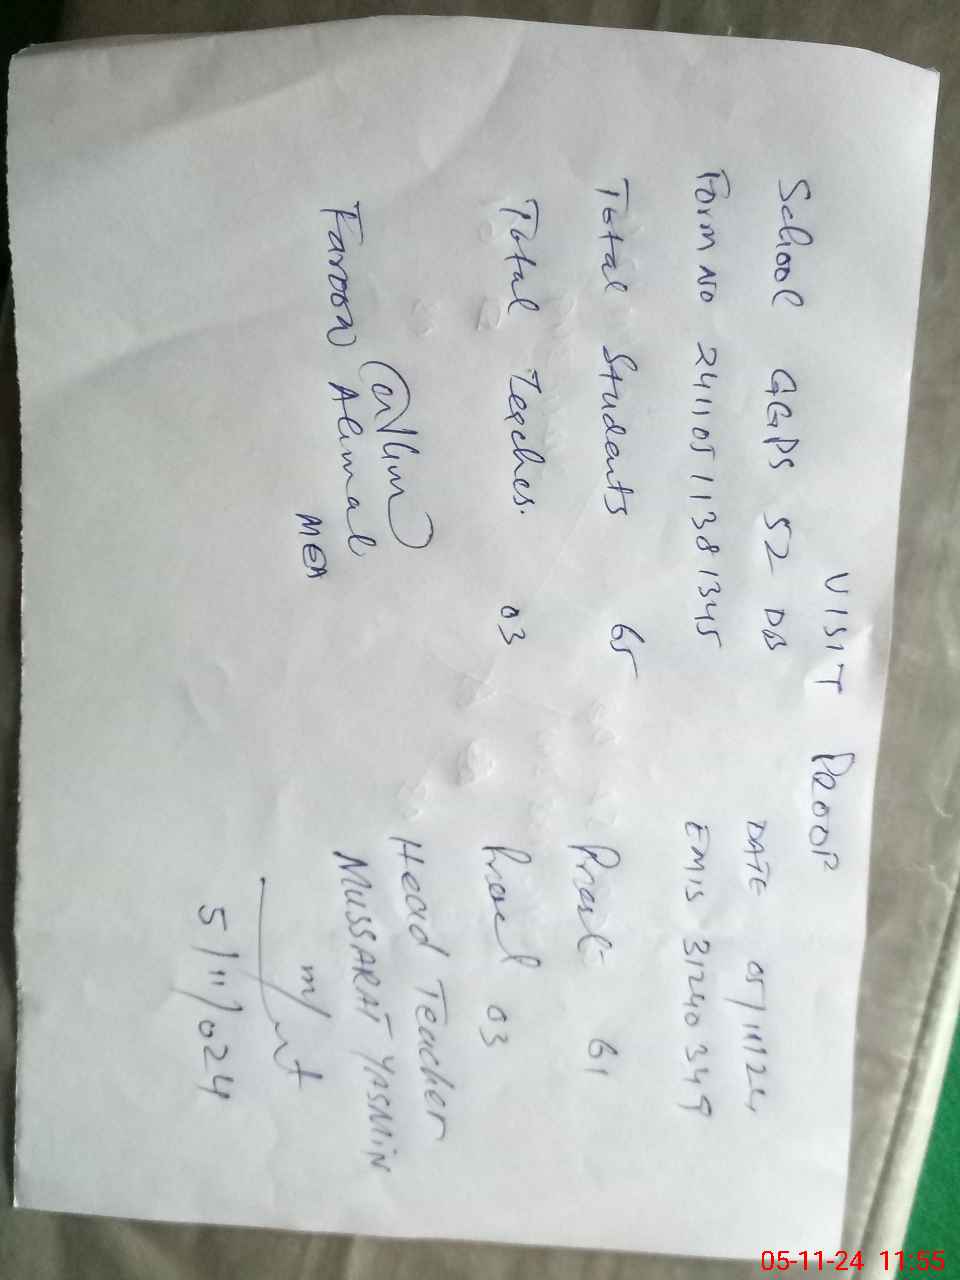 VISIT PROOF
School GGPS 52 DB DATE 05/11/24
Form No 2411051138 1345 EMIS 31240349
Total Students 65 Present 61
Total Teaches. 03 Present 03
Head Teacher
Farooq Ahmad MUSSARAT YASMIN
MEA
5/11/024
05-11-24 11:55